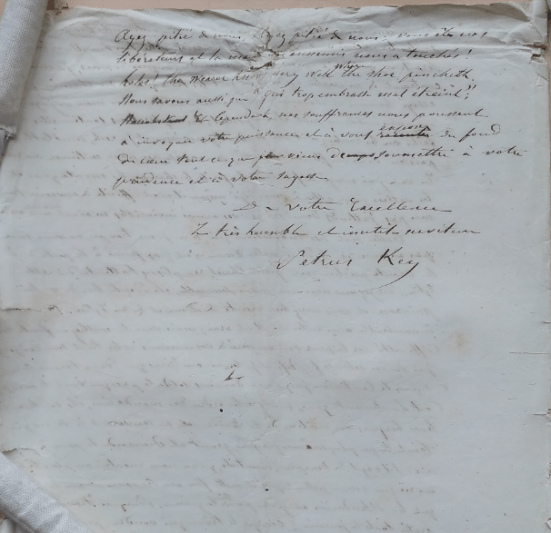 Ayez pitié de nous! Ayez pitié de nous! vous êtes nos
libérateurs et la main ennemis nous a touchés!
hélas! the wearer knows very well where the shoe pincheth.
Nous savons aussi que "qui trop embrasse mal étreint"!
et cependant nos souffrances nous poussent
à invoquer votre puissance et à vous du fond
du cœur tout ce que soumettre à votre
prudence et à votre sagesse
De votre Excellence
le très humble et inutile serviteur
Petrus Key